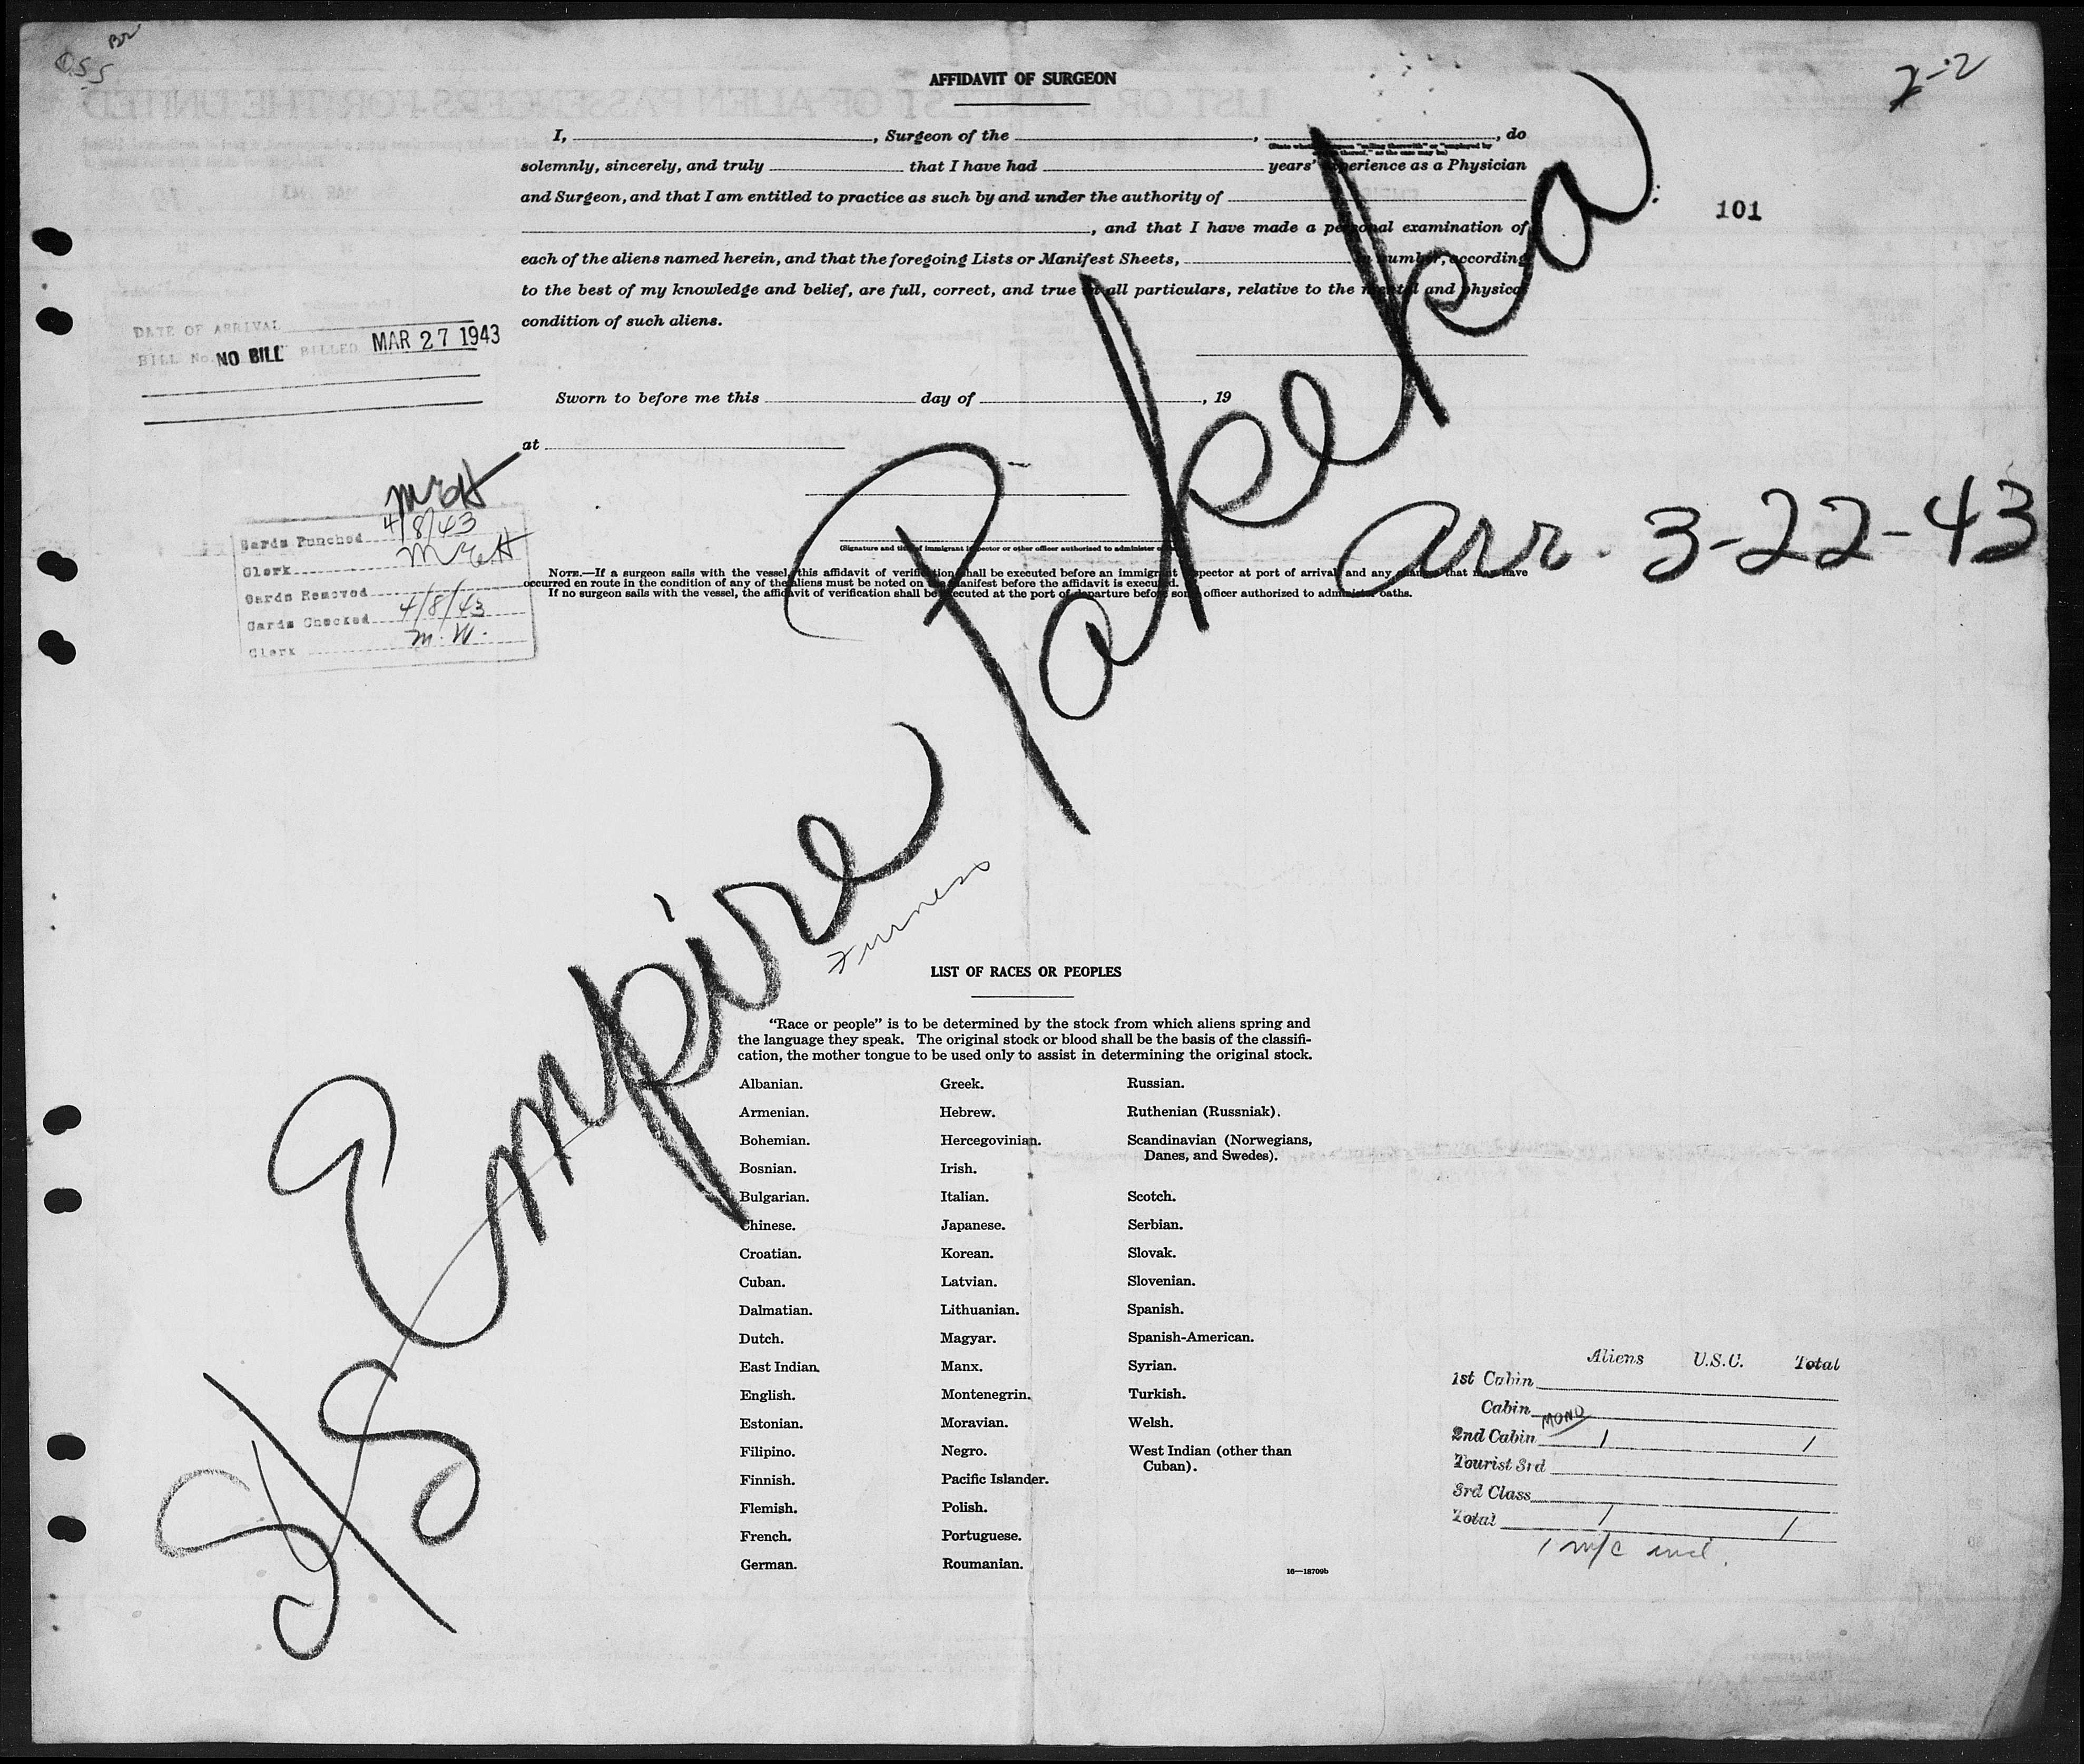 O.S.S
Br
2-2
AFFIDAVIT OF SURGEON
I, , Surgeon of the , , do
(State whether surgeon "sailing therewith" or "employed by
owners thereof," as the case may be)
solemnly, sincerely, and truly that I have had years' experience as a Physician
and Surgeon, and that I am entitled to practice as such by and under the authority of
, and that I have made a personal examination of
each of the aliens named herein, and that the foregoing Lists or Manifest Sheets, in number, according
to the best of my knowledge and belief, are full, correct, and true in all particulars, relative to the mental and physical
condition of such aliens.
101
DATE OF ARRIVAL
BILL No. NO BILL BILLED MAR 27 1943
Sworn to before me this day of , 19
at
(Signature and title of immigrant inspector or other officer authorized to administer oaths)
NOTE.—If a surgeon sails with the vessel, this affidavit of verification shall be executed before an immigrant inspector at port of arrival, and any changes that may have
occurred en route in the condition of any of the aliens must be noted on the manifest before the affidavit is executed.
If no surgeon sails with the vessel, the affidavit of verification shall be executed at the port of departure before some officer authorized to administer oaths.
Cards Punched 4/8/43
Clerk
Cards Removed
Cards Checked 4/8/43
Clerk M.W.
S/S Empire Pakeha
arr. 3-22-43
Furness
LIST OF RACES OR PEOPLES
"Race or people" is to be determined by the stock from which aliens spring and
the language they speak. The original stock or blood shall be the basis of the classifi-
cation, the mother tongue to be used only to assist in determining the original stock.
Albanian. Greek. Russian.
Armenian. Hebrew. Ruthenian (Russniak).
Bohemian. Hercegovinian. Scandinavian (Norwegians,
Danes, and Swedes).
Bosnian. Irish.
Bulgarian. Italian. Scotch.
Chinese. Japanese. Serbian.
Croatian. Korean. Slovak.
Cuban. Latvian. Slovenian.
Dalmatian. Lithuanian. Spanish.
Dutch. Magyar. Spanish-American.
East Indian. Manx. Syrian.
English. Montenegrin. Turkish.
Estonian. Moravian. Welsh.
Filipino. Negro. West Indian (other than
Cuban).
Finnish. Pacific Islander.
Flemish. Polish.
French. Portuguese.
German. Roumanian.
16—18709b
Aliens U.S.C. Total
1st Cabin
Cabin MONO
2nd Cabin 1 1
Tourist 3rd
3rd Class
Total 1 1
1 m/c incl.